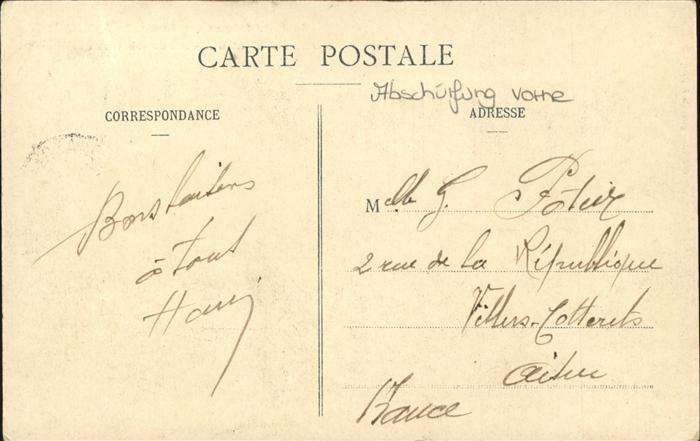 CARTE POSTALE
Abschürfung vorne
CORRESPONDANCE
ADRESSE
Bons baisers
à tous
Mlle G. Potier
2 rue de la République
Villers-Cotterets
Aisne
France